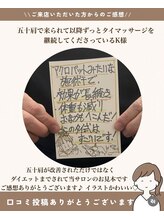 ＼ご来店いただいた方からのご感想／
五十肩で来られて以降ずっとタイマッサージを
継続してくださっているK様
アクロバットみたいな
施術で、
効果が長続き
体重も減り
五十肩が改善されただけではなく
ダイエットまでされて当サロンのお見本です
ご感想ありがとうございます♪ イラストかわいい
口コミ投稿ありがとうございます